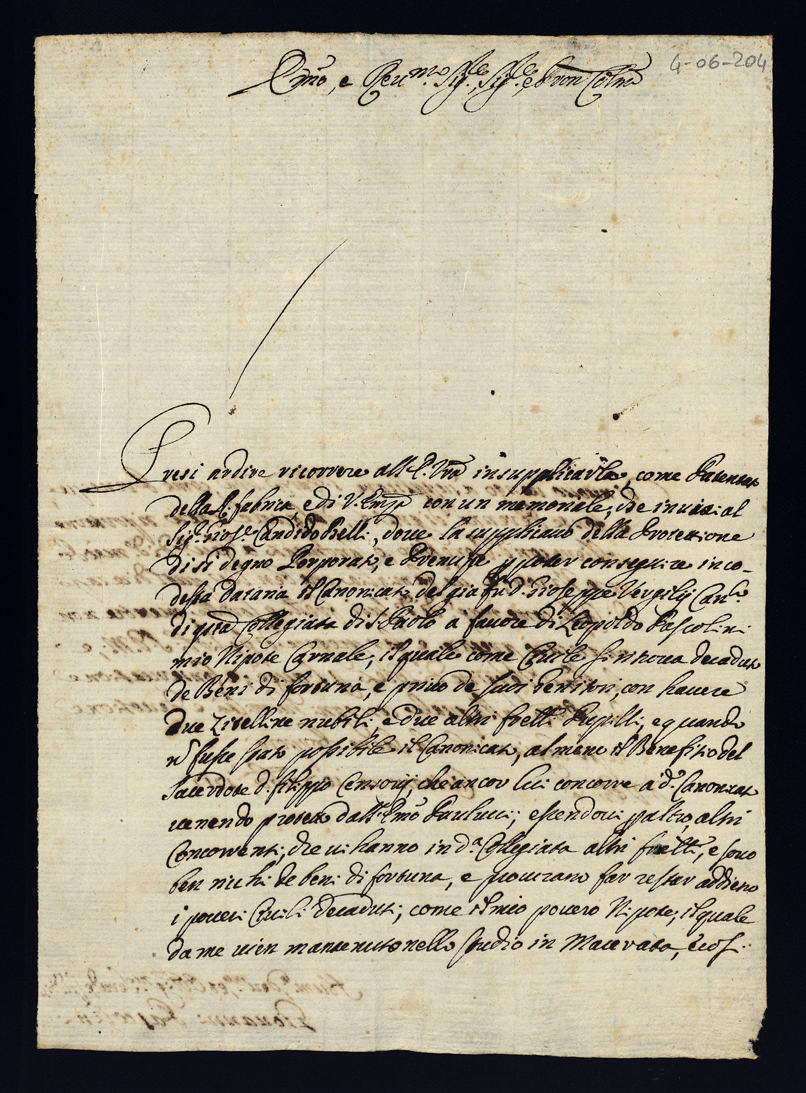 4-06-204
Emo, e Reu.mo Sig.re, Sig.re e Pron Colmo
Presi ardire ricorrere all'E. Vra in supplicarla, come Patentato
della R. fabrica e di V. Em.za con un memoriale, che inviai al
Sig. Gios.e Candido Belli, dove la supplicavo della Protezione
di sì degno Porporato, e Premure p poter conseguire in co-
desta Dataria il Canonicato del già fu D. Gioseppe Vergilij Can.co
di qsta Collegiata di S. Paolo a favore di Leopoldo Pascolini
mio Nipote Carnale, il quale come Civile si ritrova decaduto
de Beni di fortuna, e privo de suoi Genitori, con havere
due Zitelline nubili e due altri fretti Pupilli, e quando
n fusse stato possibile il Canonicato, almeno il Benefitio del
Sacerdote D. Filippo Censorij, che ancor lui concorre a do Canonicato
venendo protetto dall'Emo Paulucci, essendovi p altro, altri
Concorrenti, che vi hanno in da Collegiata altri fretti, e sono
ben ricchi de beni di fortuna, e procurano far restar addietro
i poveri Civili decaduti, come il mio povero Nipote, il quale
da me vien mantenuto nello studio in Macerata, e così